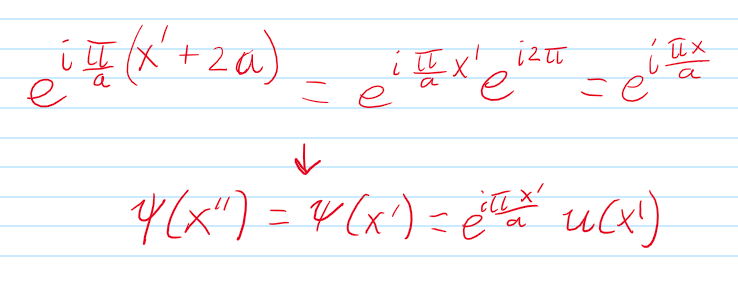 e^{i\frac{π}{a}(x'+2a)} = e^{i\frac{π}{a}x'} e^{i2π} = e^{i\frac{πx}{a}}
↓
ψ(x'') = ψ(x') = e^{i\frac{πx'}{a}} u(x')